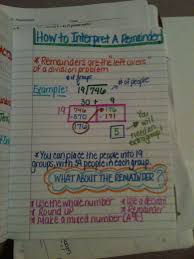 How to Interpret A Remainder
* Remainders are the left overs
of a division problem
# of groups
# of people
Example: 19√746
30 + 9
19 746 176
-570 -171
176 5
You
will
need an
extra group
* You can place the people into 19
groups, with 39 people in each group.
WHAT ABOUT THE REMAINDER?
* Use the whole number
* Use a decimal
* Round up
* remainder
* Make a mixed number